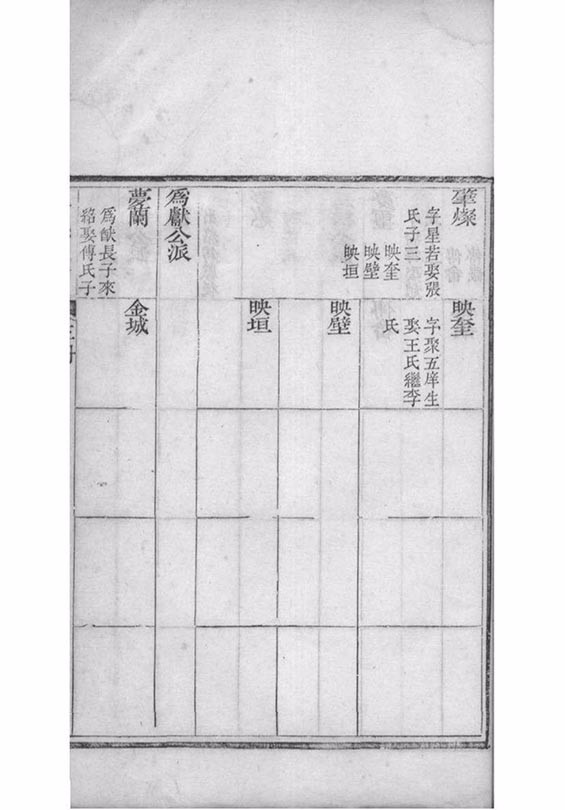 華燦
字星若娶張
氏子三
映奎
映壁
映垣
映奎
字聚五庠生
娶王氏繼李
氏
映壁
映垣
為獻公派
夢蘭
為猷長子來
紹娶傅氏子
金城